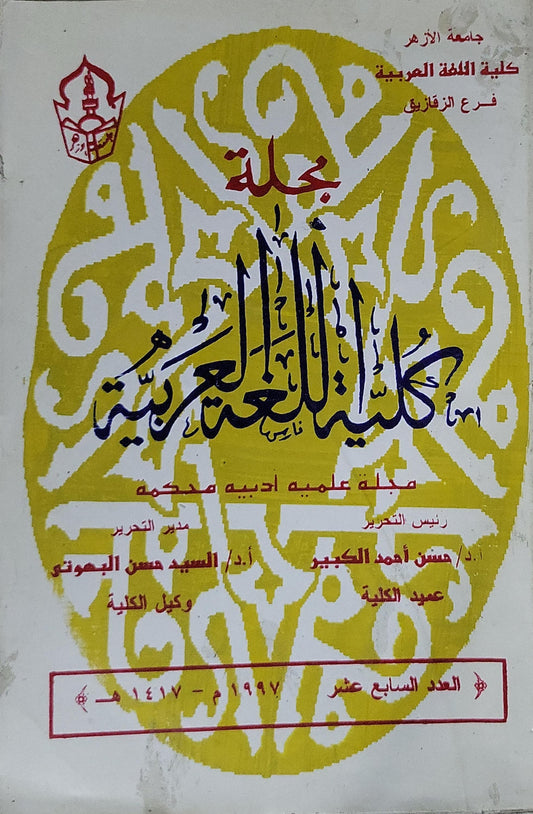 جامعة الأزهر
كلية اللغة العربية
فرع الزقازيق
مجلة
كلية اللغة العربية
فارس
مجلة علميه أدبيه محكمه
رئيس التحرير
أ.د/ حسن أحمد الكبير
عميد الكلية
مدير التحرير
أ.د/ السيد حسن البهوتى
وكيل الكلية
العدد السابع عشر ١٩٩٧ م – ١٤١٧ هـ